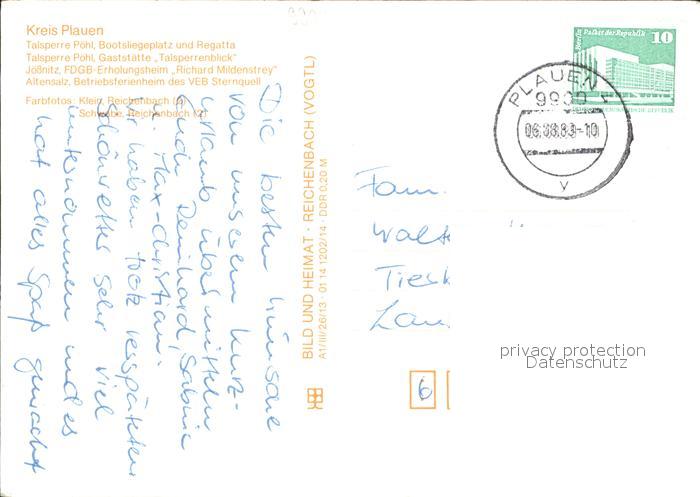 Kreis Plauen
Talsperre Pöhl, Bootsliegeplatz und Regatta
Talsperre Pöhl, Gaststätte „Talsperrenblick“
Jößnitz, FDGB-Erholungsheim „Richard Mildenstrey“
Altensalz, Betriebsferienheim des VEB Sternquell
Farbfotos: Klein, Reichenbach (3)
Schwabe, Reichenbach (2)
Die besten Wünsche
von unserem Kurz-
urlaub übermitteln
Euch Reinhard, Sabine
u. Max-Christian.
Wir haben trotz verspäteten
Schönwetter sehr viel
unternommen und es
hat alles Spaß gemacht
BILD UND HEIMAT · REICHENBACH (VOGTL)
A1/III/26/13 · 01 14 1202/14 · DDR 0,20 M
Berlin Palast der Republik
10
PLAUEN 1
9900
06.08.83-10
V
Fam.
Walt
6
privacy protection
Datenschutz